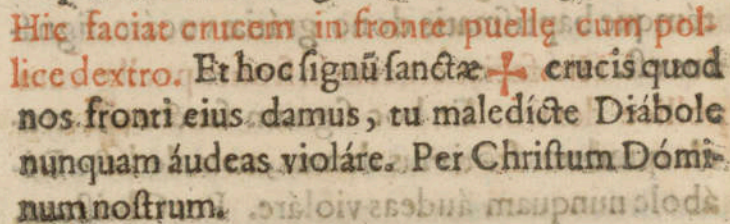 Hic faciat crucem in fronte puellę cum pol-
lice dextro. Et hoc ſignũ ſanctæ ✠ crucis quod
nos fronti eius damus, tu maledícte Diábole
nunquam áudeas violáre. Per Chriſtum Dómi-
num noſtrum.